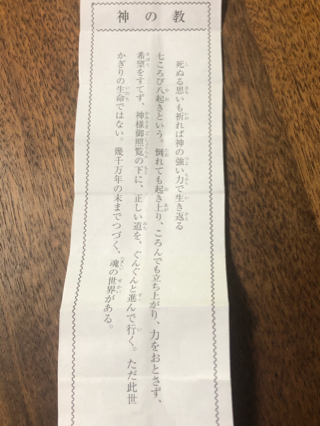 神の教
死ぬる思いも祈れば神の強い力で生き返る
七ころび八起きという。倒れても起き上り、ころんでも立ち上がり、力をおとさず、
希望をすてず、神様御照覧の下に、正しい道を、ぐんぐんと進んで行く。ただ此世
かぎりの生命ではない。幾千万年の末までつづく、魂の世界がある。